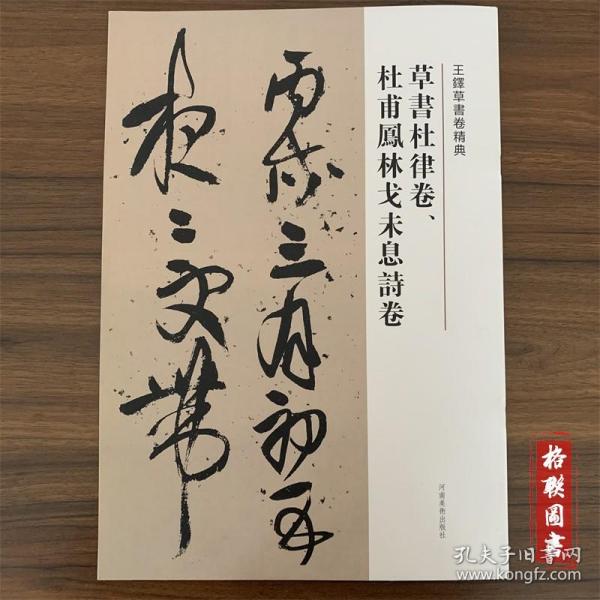 王鐸草書卷精典
草書杜律卷、
杜甫鳳林戈未息詩卷
丙戌三月初五
夜二更帶
河南美術出版社
格联圖書
孔夫子旧书网
www.kongfz.com